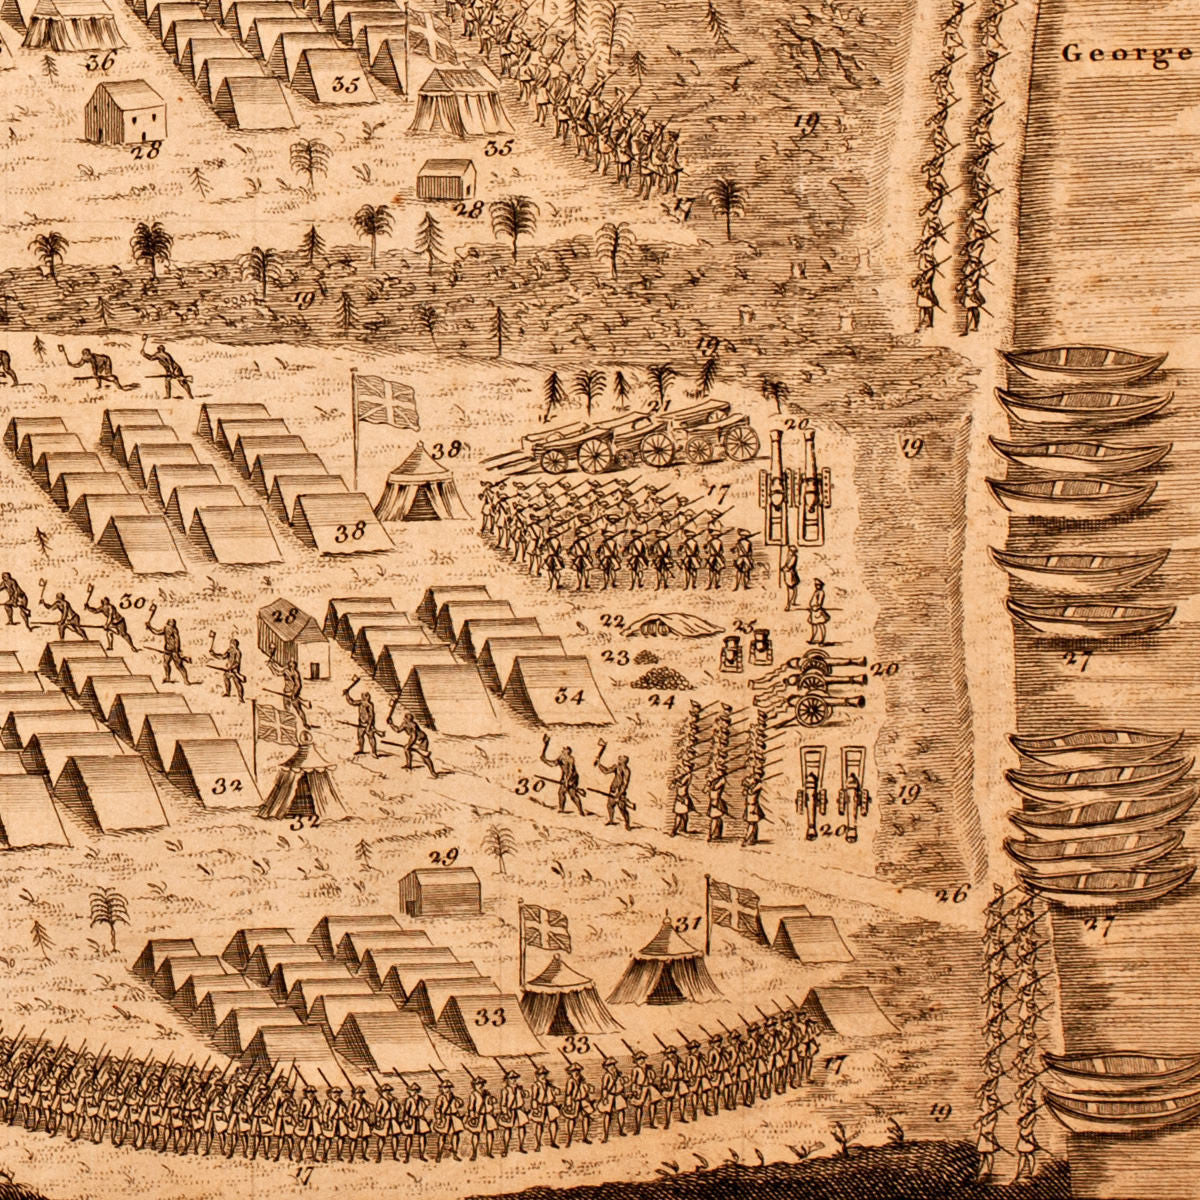 George
36
35
28
35
19
28
17
19
19
38
21
20
19
17
38
30
28
22
25
23
20
24
27
34
32
30
19
32
20
29
26
27
31
33
33
17
19
17